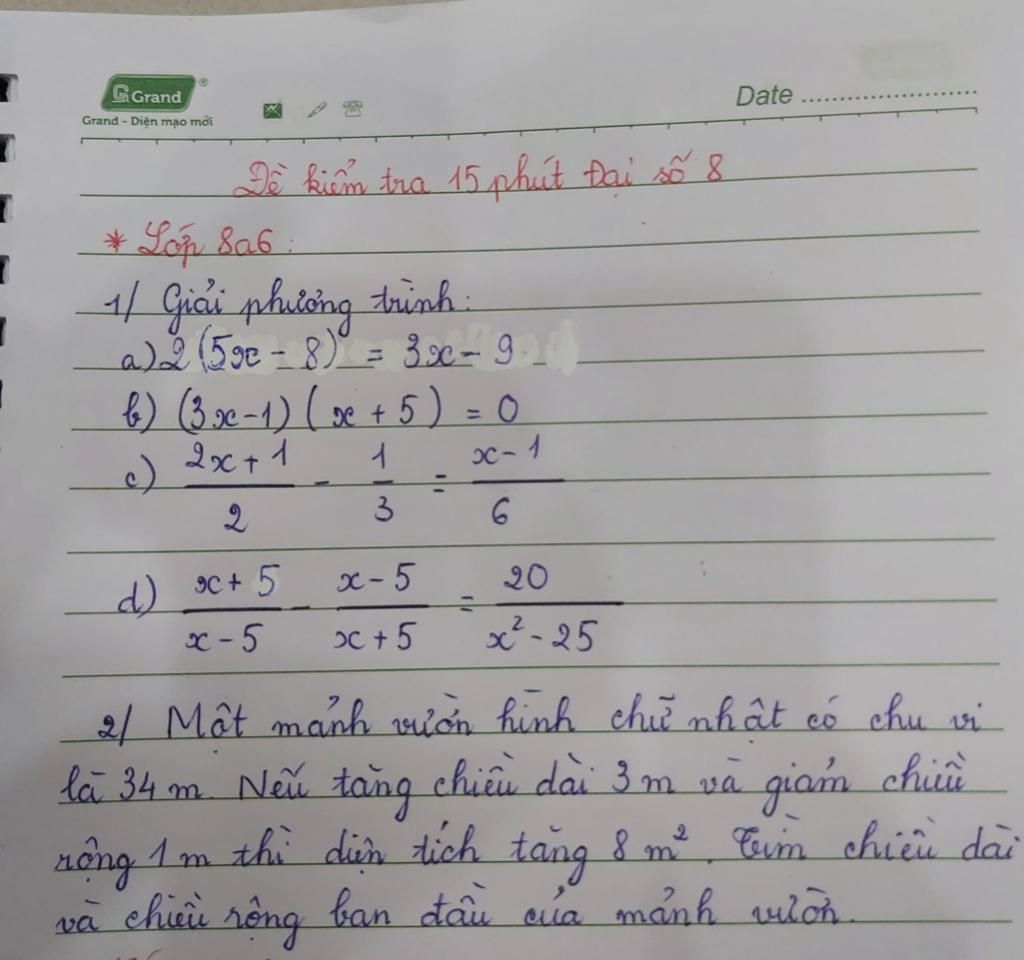 Grand®
Grand - Diện mạo mới
Date ..............................
Đề kiểm tra 15 phút Đại số 8
* Lớp 8a6:
1/ Giải phương trình:
a) 2(5x - 8) = 3x - 9
b) (3x-1)(x + 5) = 0
c) (2x+1)/2 - 1/3 = (x-1)/6
d) (x+5)/(x-5) - (x-5)/(x+5) = 20/(x² - 25)
2/ Một mảnh vườn hình chữ nhật có chu vi
là 34 m. Nếu tăng chiều dài 3 m và giảm chiều
rộng 1 m thì diện tích tăng 8 m². Tìm chiều dài
và chiều rộng ban đầu của mảnh vườn.